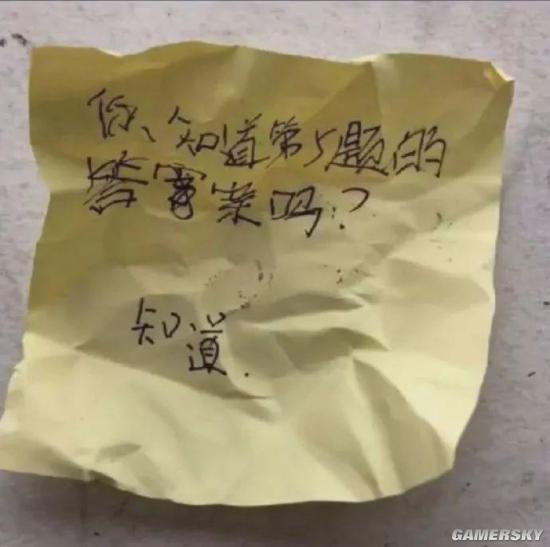 你、知道第5题的
答案吗?
知道.
GAMERSKY